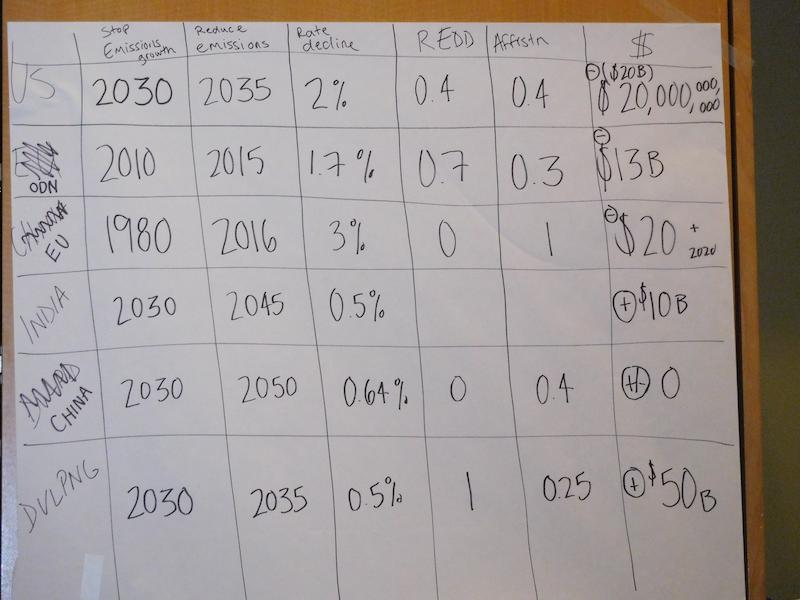 Stop Emissions growth Reduce emissions Rate decline REDD Affrstn $
US 2030 2035 2% 0.4 0.4 ⊖($20B) $20,000,000,000
ODN 2010 2015 1.7% 0.7 0.3 ⊖ $13B
EU 1980 2016 3% 0 1 ⊖ $20 + 2020
INDIA 2030 2045 0.5% ⊕ $10B
CHINA 2030 2050 0.64% 0 0.4 0
DVLPNG 2030 2035 0.5% 1 0.25 ⊕ $50B